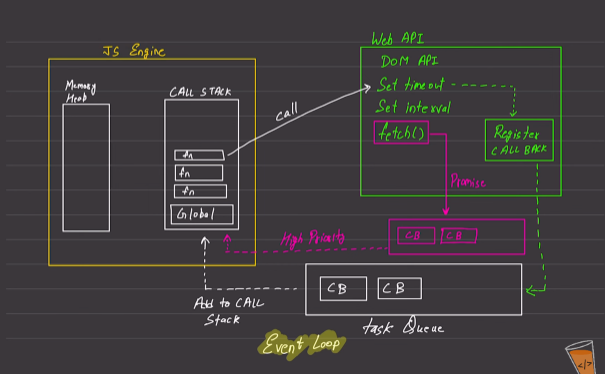 JS Engine
Memory
Heap
CALL STACK
fn
fn
fn
Global
call
Web API
DOM API
Set timeout
Set interval
fetch()
Register
CALL BACK
Promise
High Priority
CB
CB
CB
CB
Add to CALL
Stack
task Queue
Event Loop
</>